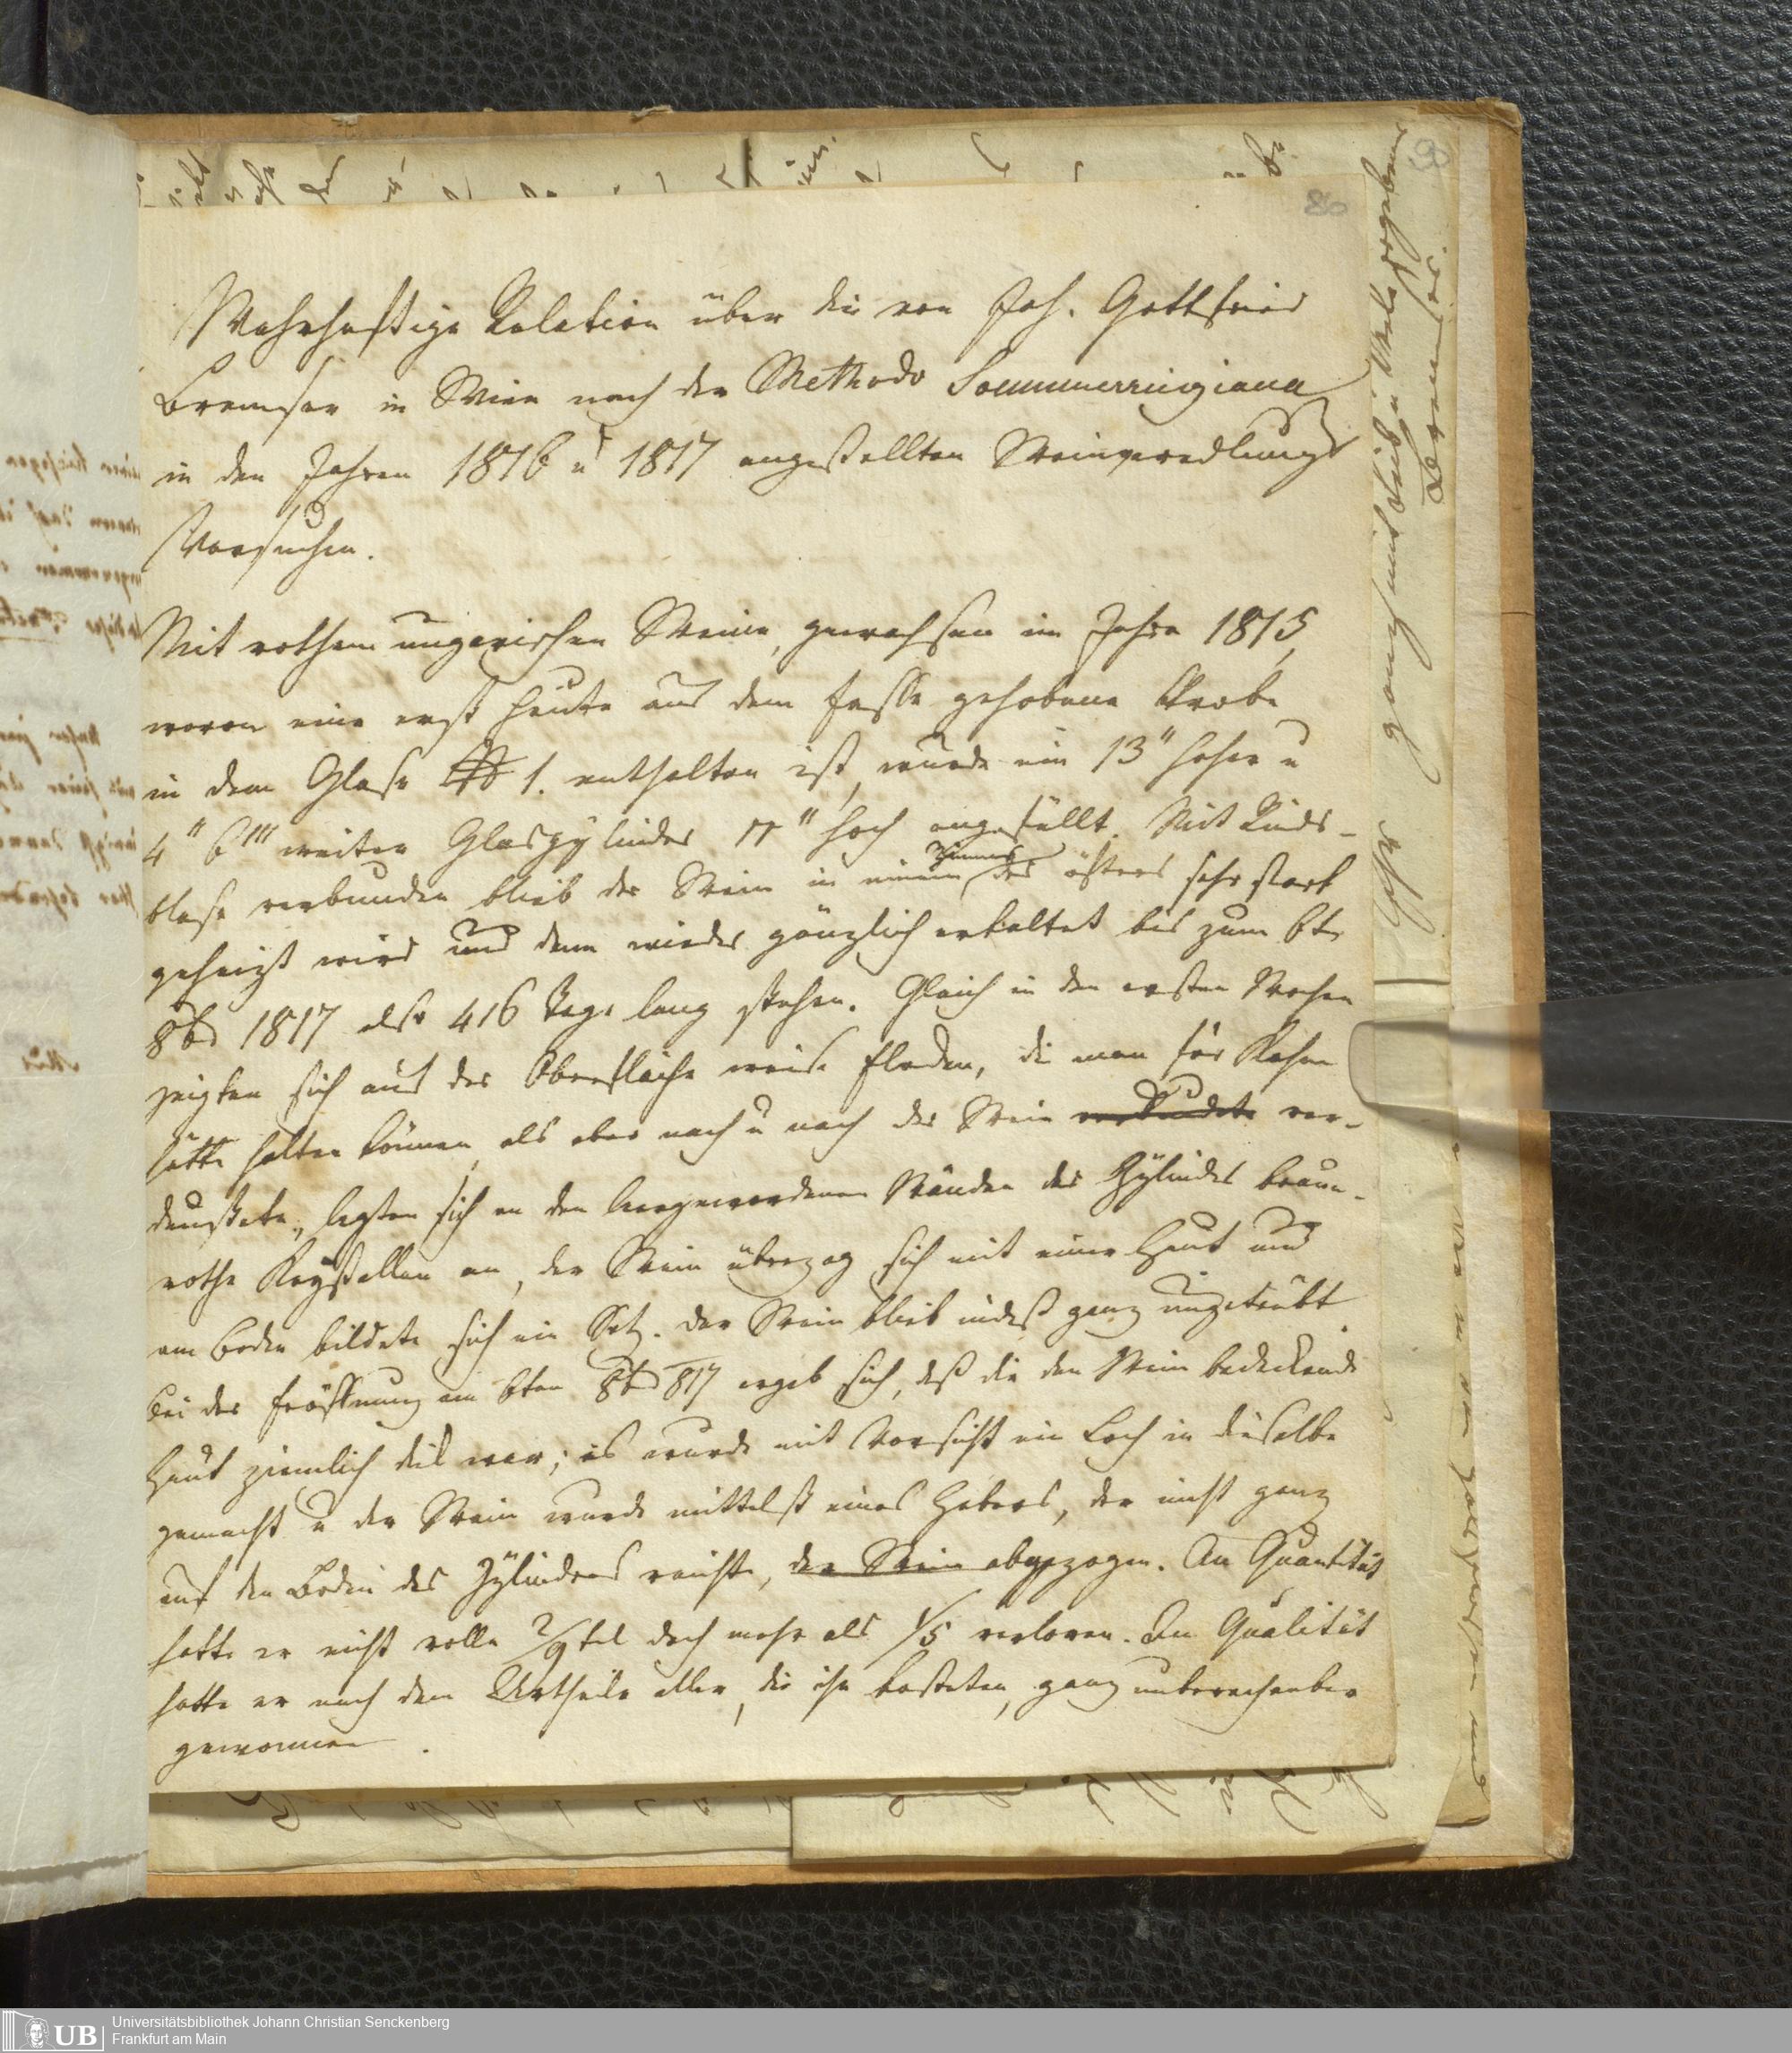 80
Wahrhaftige Relation über die von Joh. Gottfried
Bremser in Wien nach der Methodo Soemmerringiana
in den Jahren 1816 u 1817 angestellten Weinveredlungs
Versuchen.
Mit rothem ungarischen Weine, gewachsen im Jahre 1815,
wovon eine erst heute aus dem Fasse gehobene Probe
in dem Glase № 1. enthalten ist, wurde ein 13" hoher u
4" 6''' weiter Glaszylinder 11" hoch angefüllt. Mit Rinds-
blase verbunden blieb der Wein in einem Zimmer, das öfters sehr stark
geheizt wird und dann wieder gänzlich erkaltet bis zum 6t
8br 1817 also 416 Tage lang stehen. Gleich in den ersten Wochen
zeigten sich auf der Oberfläche weise Floden, die man für Rahm
hätte halten können, als aber nach u nach der Wein ver-
dunstete, legten sich an den leergewordenen Wänden des Zylinders braun-
rothe Krystallen an, der Wein überzog sich mit einer Haut und
am Boden bildete sich ein Satz. Der Wein blieb indeß ganz ungetrübt.
Bei der Eröffnung am 6ten 8br 817 ergab sich, daß die den Wein bedeckende
Haut ziemlich dik war; es wurde mit Vorsicht ein Loch in dieselbe
gemacht u der Wein wurde mittelst eines Hebers, der nicht ganz
auf den Boden des Zylinders reichte, der Wein abgezogen. An Quantität
hatte er nicht volle 2/9tel doch mehr als 1/5 verloren. An Qualität
hatte er nach dem Urtheile aller, die ihn kosteten, ganz unberechenbar
gewonnen.
90
Ihr ganz mit Leib u Seele ergebener
Bremser.
Universitätsbibliothek Johann Christian Senckenberg
Frankfurt am Main
UB